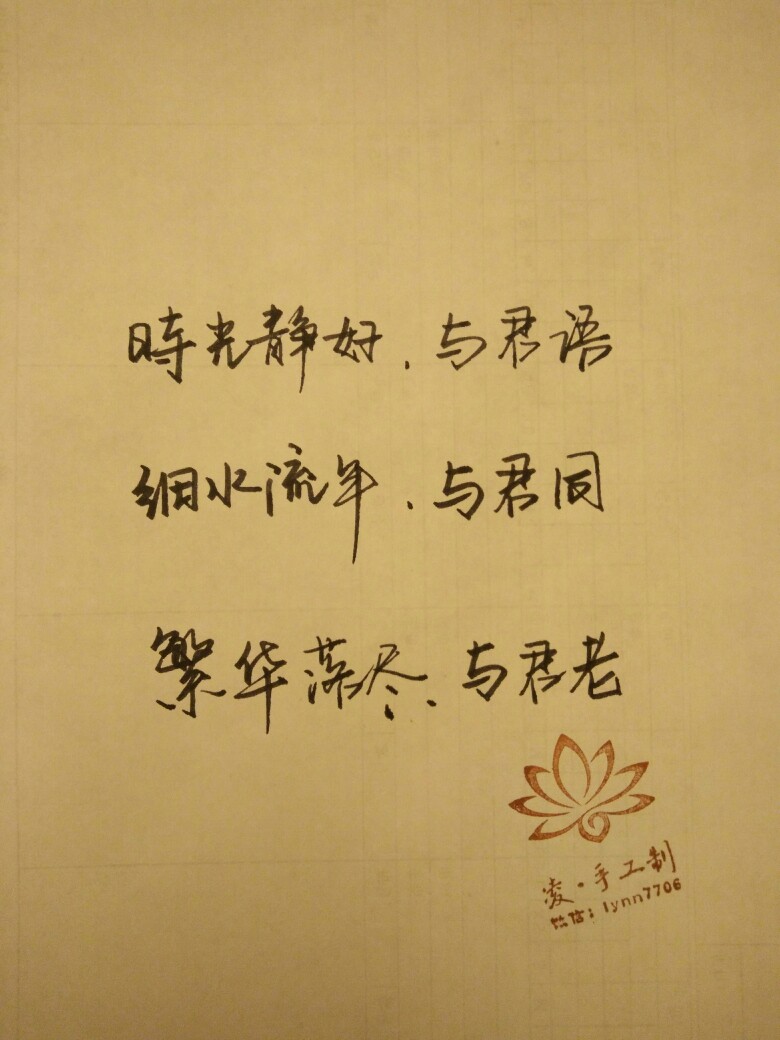 時光静好，与君语
细水流年，与君同
繁华落尽，与君老
凌·手工制
微信：lynn7706